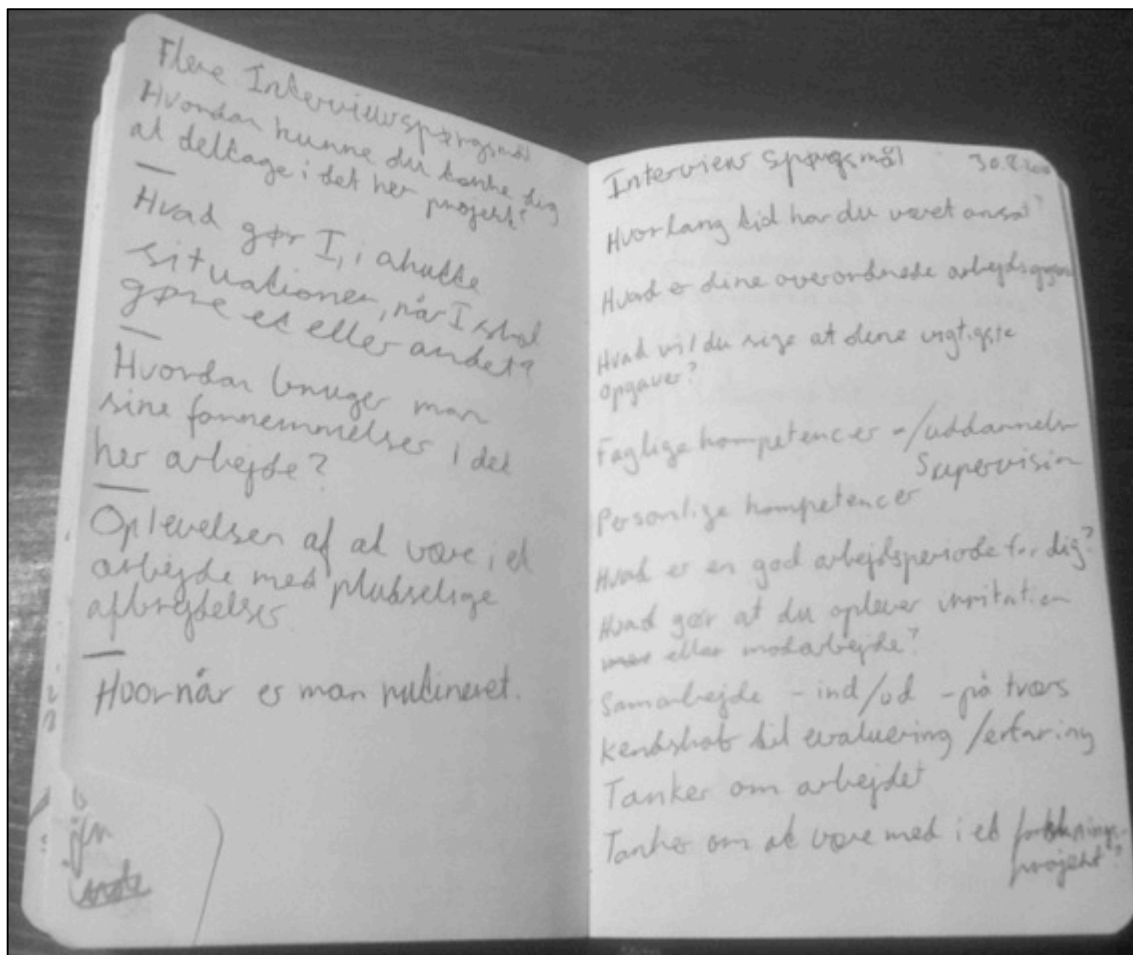 Flere Interviewspørgsmål
Hvordan kunne du tænke dig
at deltage i det her projekt?
Hvad gør I, i akutte
situationer, når I skal
gøre et eller andet?
Hvordan bruger man
sine fornemmelser i det
her arbejde?
Oplevelsen af at være i et
arbejde med pludselige
afbrydelser
Hvornår er man rutineret.
Interview spørgsmål
Hvor lang tid har du været ansat?
Hvad er dine overordnede
Hvad vil du sige at dine vigtigste
opgaver?
Faglige kompetencer - /uddannelse
Supervision
Personlige kompetencer
Hvad er en god arbejdsperiode for dig?
Hvad gør at du oplever irritation
eller modarbejde?
Samarbejde - ind/ud - på tværs
Kendskab til evaluering /erfaring
Tanker om arbejdet
Tanker om at være med i et forsknings-
projekt?